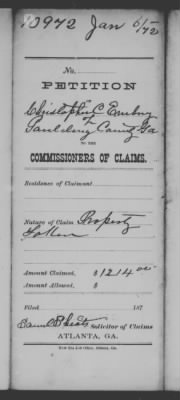 80972 Jan 6/72
No.
PETITION
Christopher C Embry
of
Paulding County Ga
TO THE
COMMISSIONERS OF CLAIMS.
Residence of Claimant
Nature of Claim Property
taken
Amount Claimed, $1214 00
Amount Allowed, $
Filed 187
Solicitor of Claims
ATLANTA, GA.